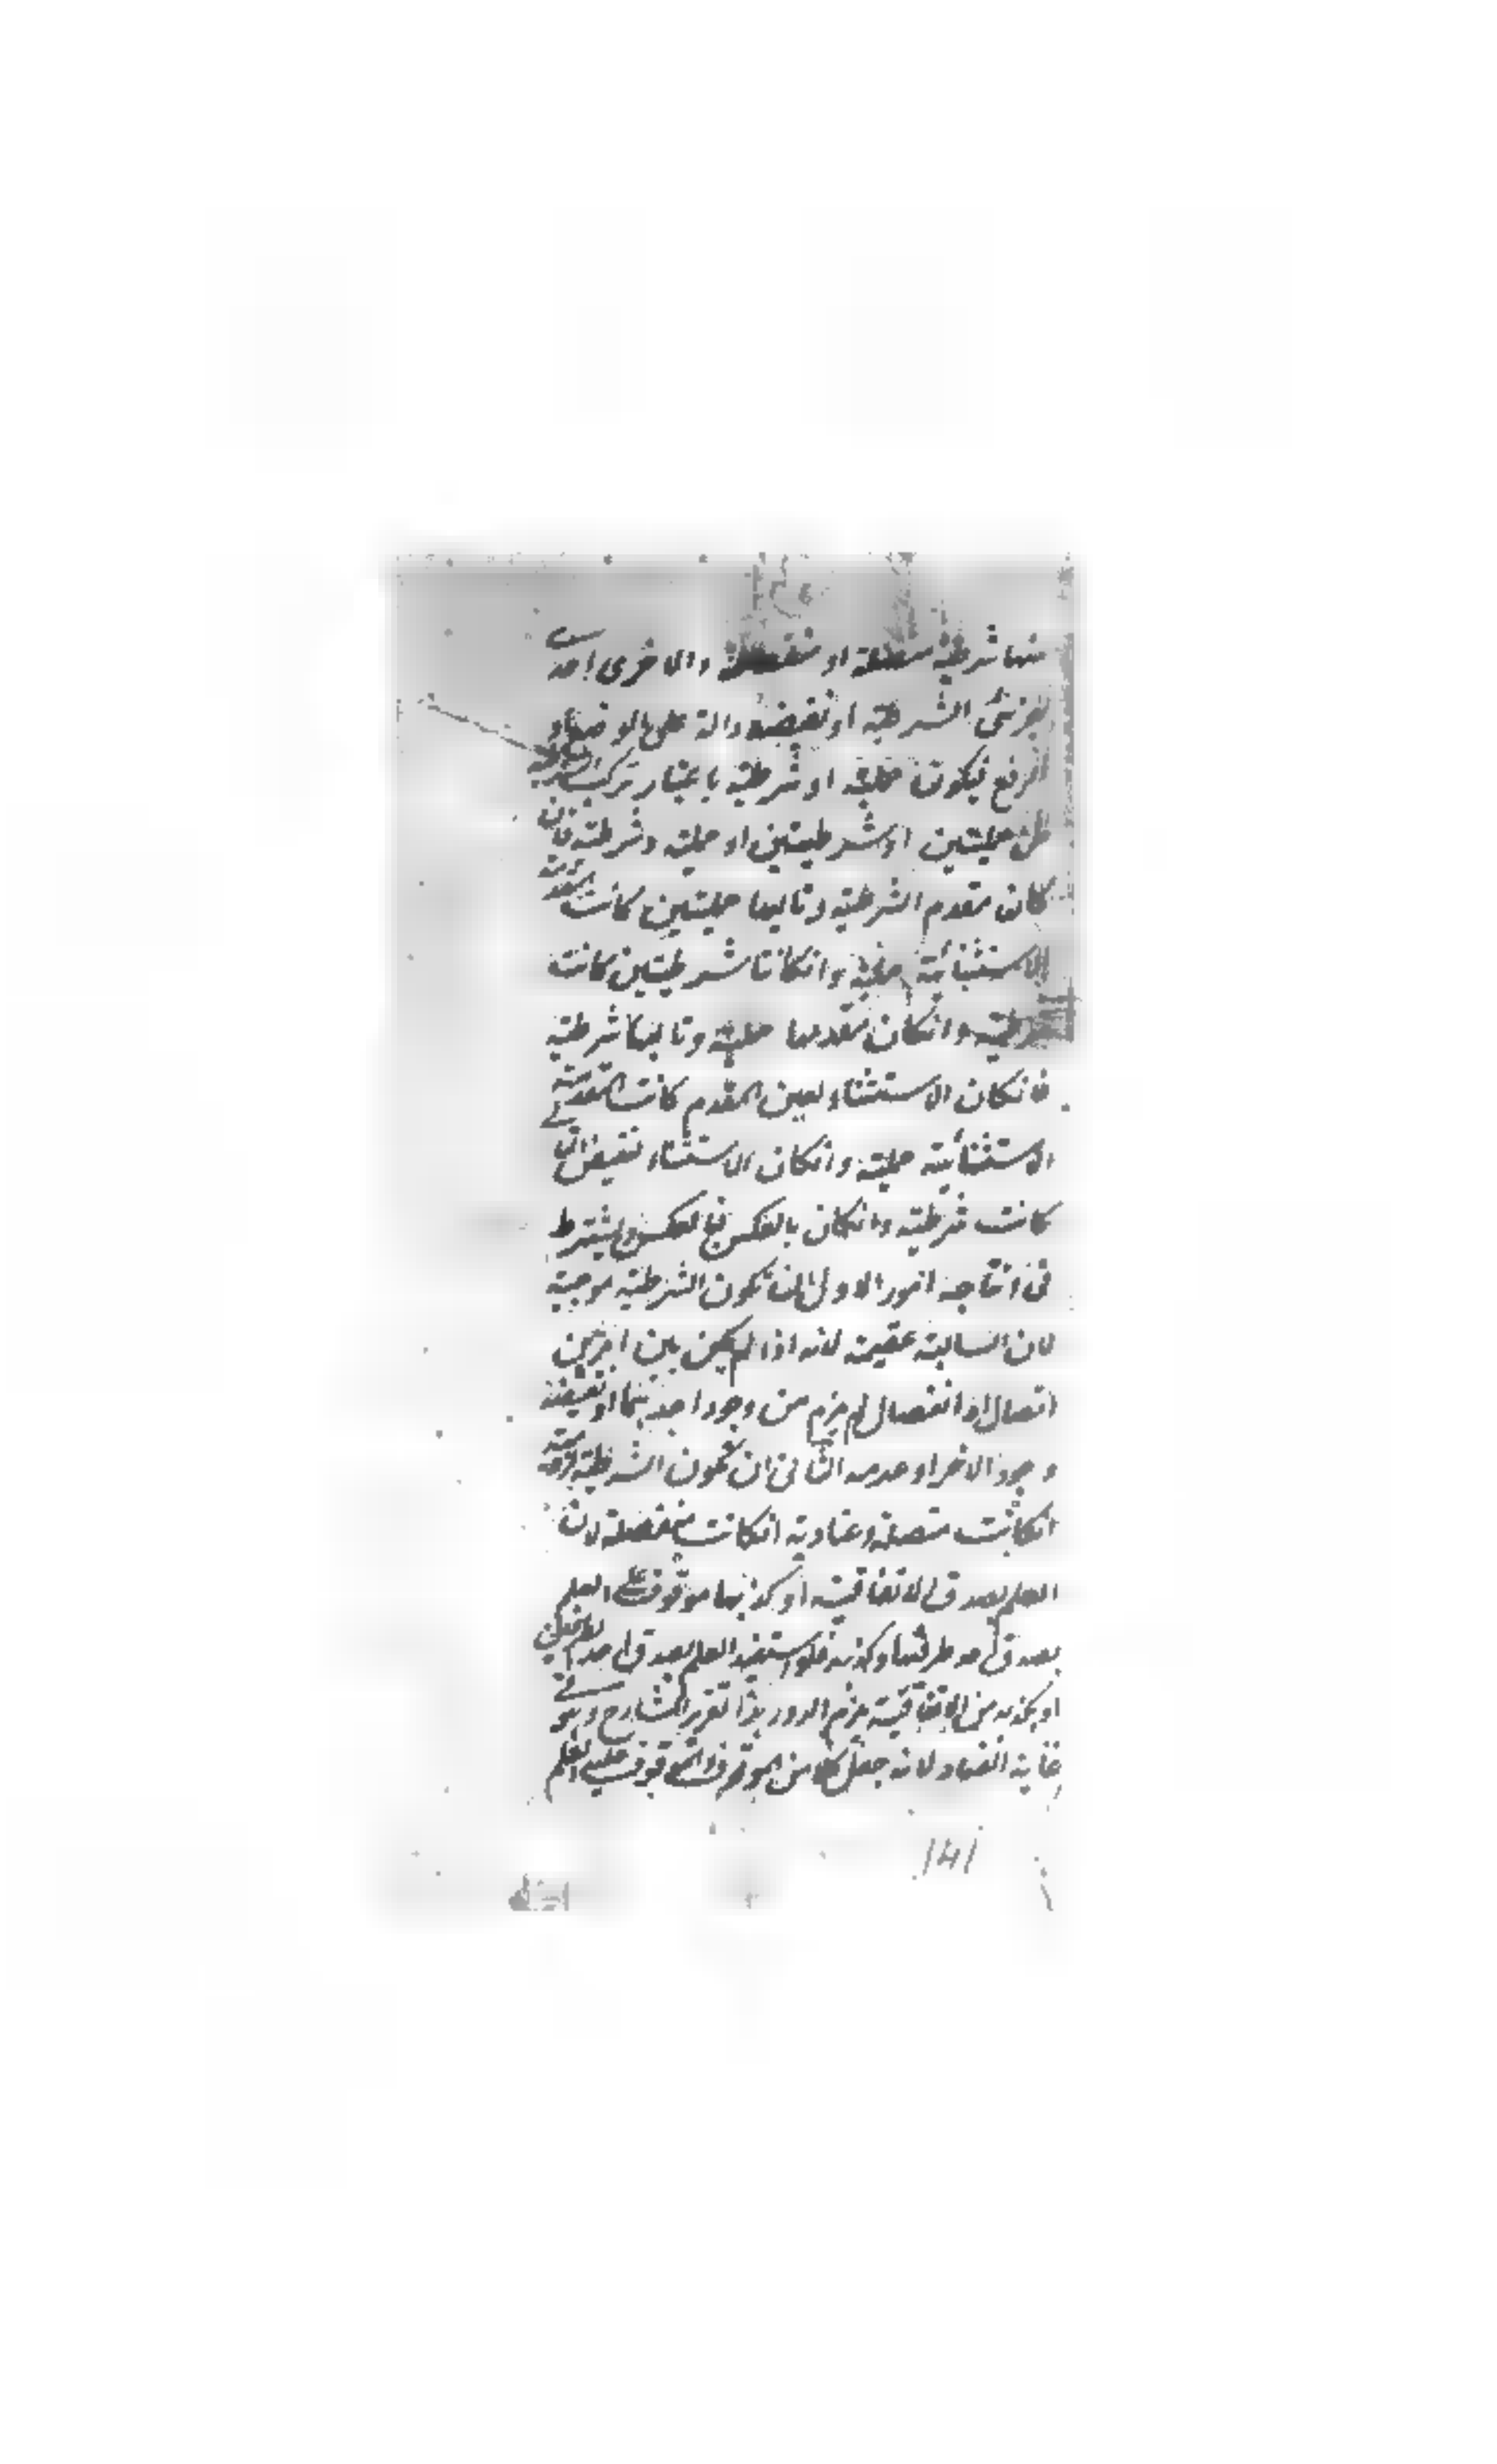 منها شرطية متصلة او منفصلة والاخرى احدى
جزئى الشرطية او نقيضه دالة على الوضع او
الرفع فيكون حملية او شرطية باعتبار تركب الشرطية
من حمليتين او شرطيتين او حملية وشرطية فان
كان مقدم الشرطية وتاليها حمليتين كانت المقدمة
الاستثنائية حملية وانكانتا شرطيتين كانت
شرطية وانكان مقدمها حملية وتاليها شرطية
فانكان الاستثناء لعين المقدم كانت المقدمة
الاستثنائية حملية وانكان الاستثناء نقيض التالى
كانت شرطية وانكان بالعكس فبالعكس ويشترط
فى انتاجه امور الاول ان تكون الشرطية موجبة
لان السالبة عقيمة لانه اذا لم يكن بين امرين
اتصال او انفصال لم يلزم من وجود احدهما او نقيضه
وجود الاخر او عدمه الثانى ان تكون الشرطية لزومية
انكانت متصلة وعنادية انكانت منفصلة لان
العلم بصدق الاتفاقية او كذبها موقوف على العلم
بصدق احد طرفيها وكذبه فلو استفيد العلم بصدق احد الطرفين
او بكذبه من الاتفاقية يلزم الدور هذا تقرير الشارح وهو فى
غاية الفساد لانه جعل كلا من الموقوف والموقوف عليه العلم